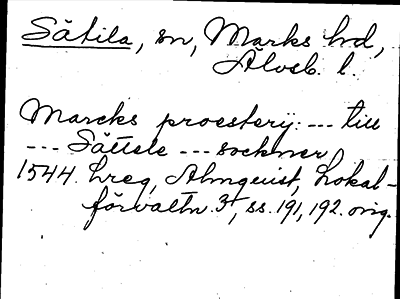 Sätila, sn, Marks hd,
Älvsb. l.
Marcks proesterij: --- till
--- Sättele --- sockner
1544. hreg, Almquist, Lokal-
förvaltn. 3, ss. 191, 192. orig.